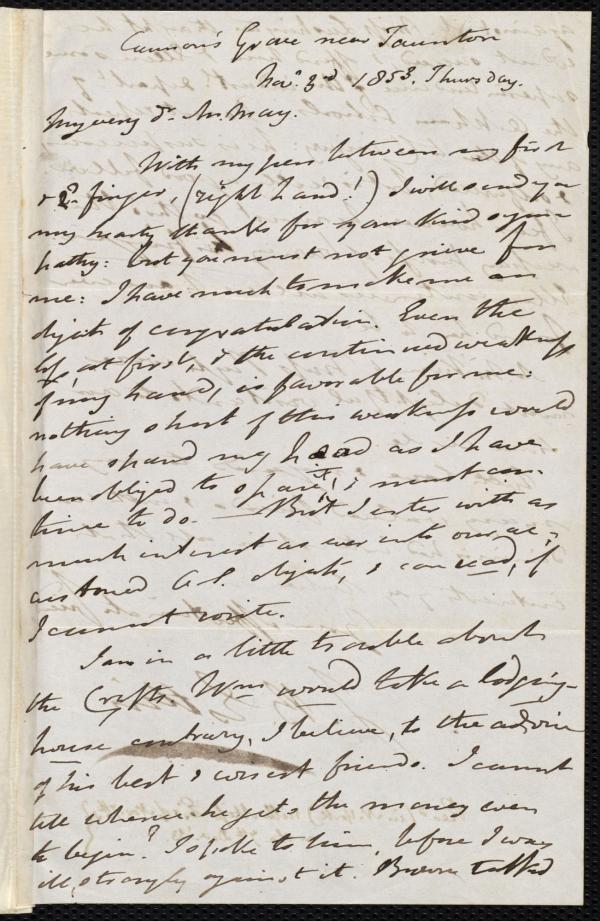 Cannon's Grove near Taunton
Nov. 3rd 1853. Thursday.
My very dr. Mr. May.
With my pen between my first
& 2d finger, (right hand!) I will send you
my hearty thanks for your kind sym-
pathy: but you must not grieve for
me: I have much to make me an
object of congratulation. Even the
loss, at first, & the continued weakness
of my hand, is favorable for me:
nothing short of this weakness would
have spared my head as I have
been obliged to spare it, & must con-
tinue to do. — But I enter with as
much interest as ever into our ac-
customed A.S. objects, & can read, if
I cannot write.
I am in a little trouble about
the Crafts. Wm would take a lodging-
house contrary, I believe, to the advice
of his best & wisest friends. I cannot
tell whence he gets the money even
to begin? I spoke to him, before I was
ill, strongly against it. Brown talked